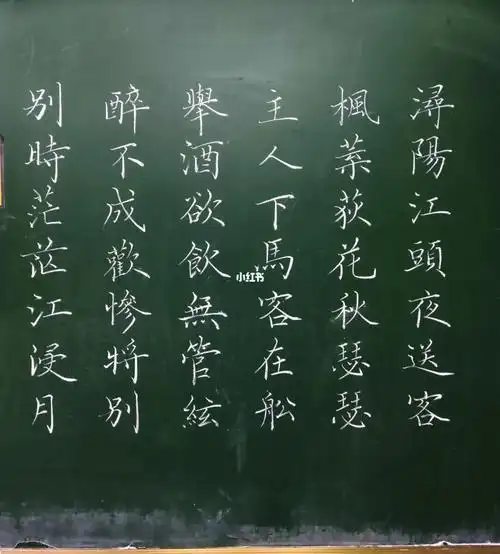 潯陽江頭夜送客
楓葉荻花秋瑟瑟
主人下馬客在船
舉酒欲飲無管絃
醉不成歡慘將別
別時茫茫江浸月
小红书